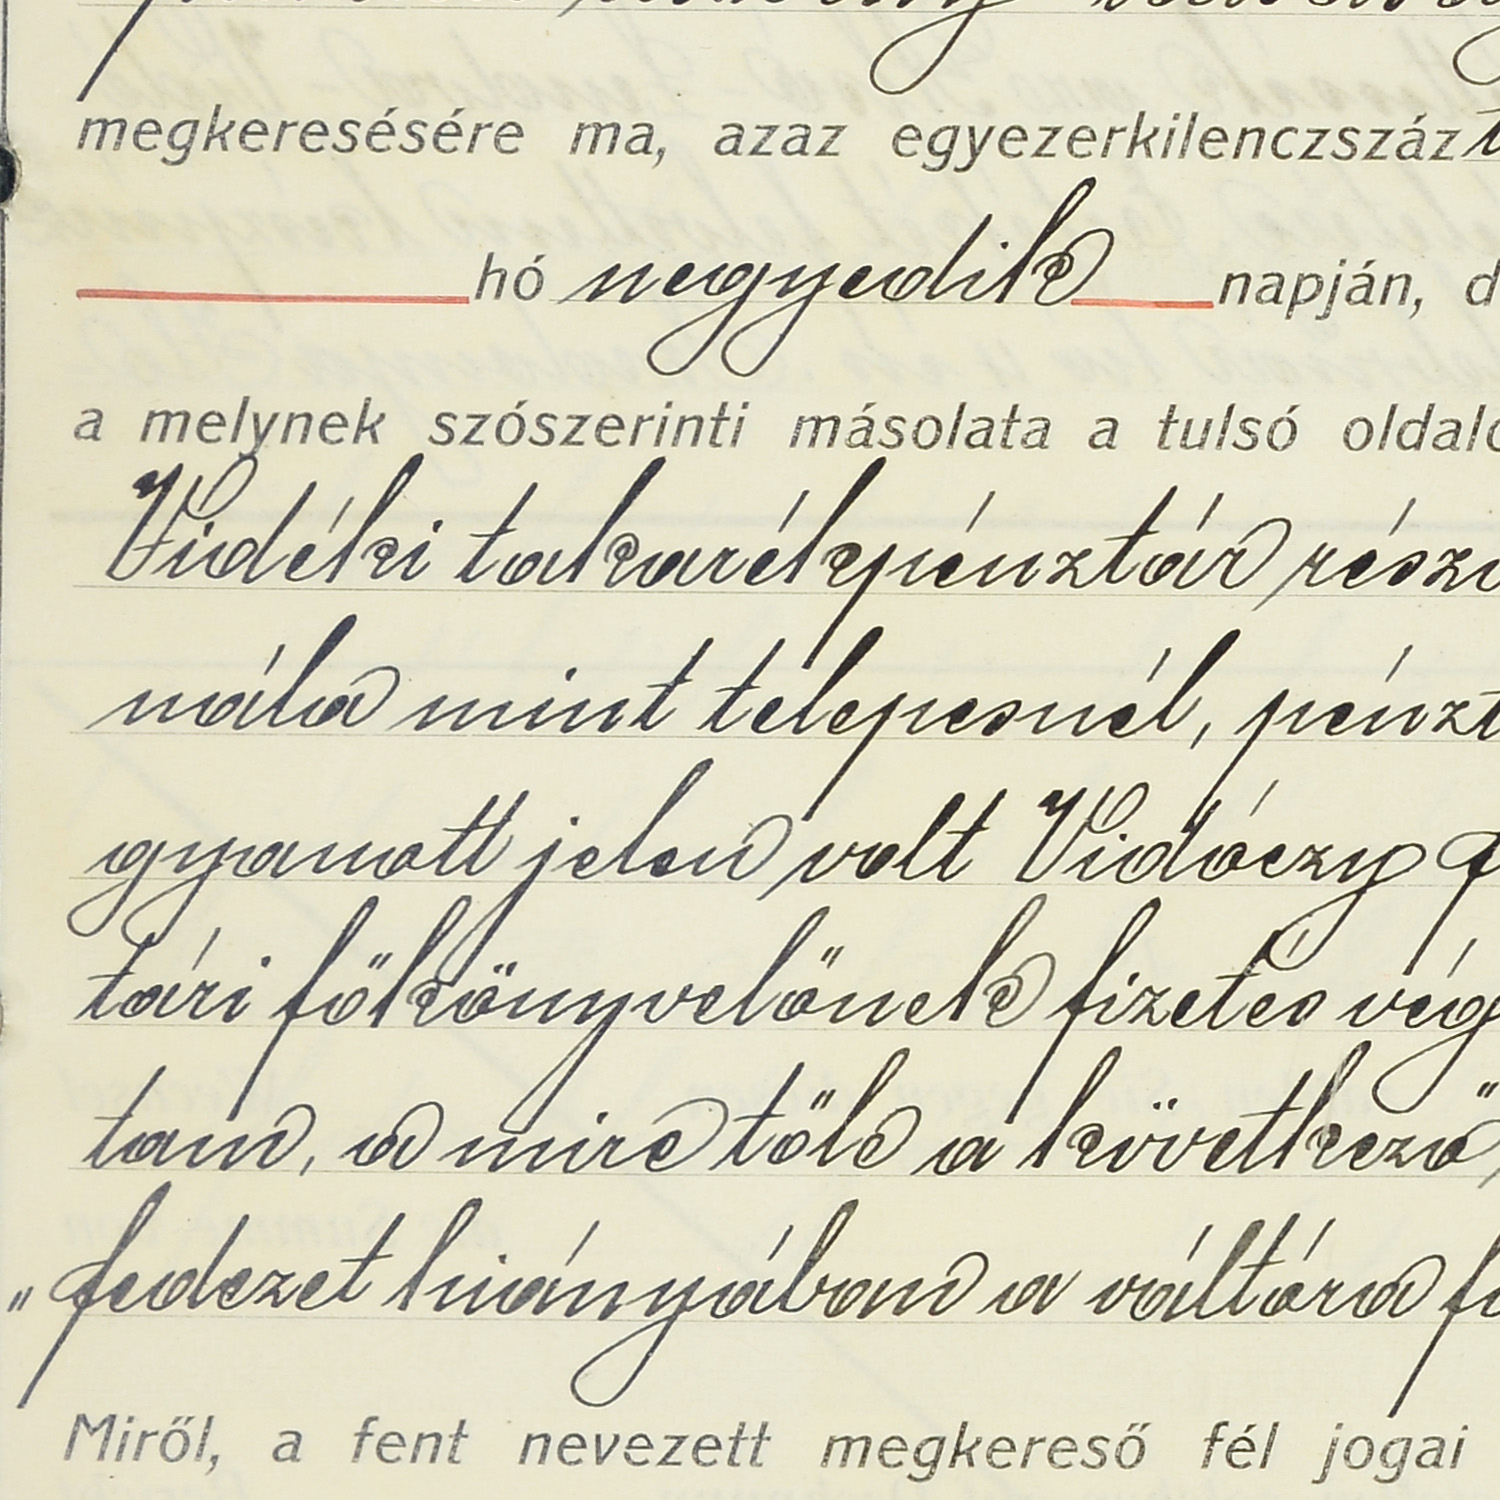 megkeresésére ma, azaz egyezerkilenczszáz
hó negyedik napján, d
a melynek szószerinti másolata a tulsó oldalo
Vidéki takarékpénztár részv
nála mint telepesnél, pénzt
gyanott jelen volt Vidóczy
tári főkönyvelőnek fizetés vég
tam, a mire tőle a következő
„fedezet hiányában a váltóra fi
Miről, a fent nevezett megkereső fél jogai